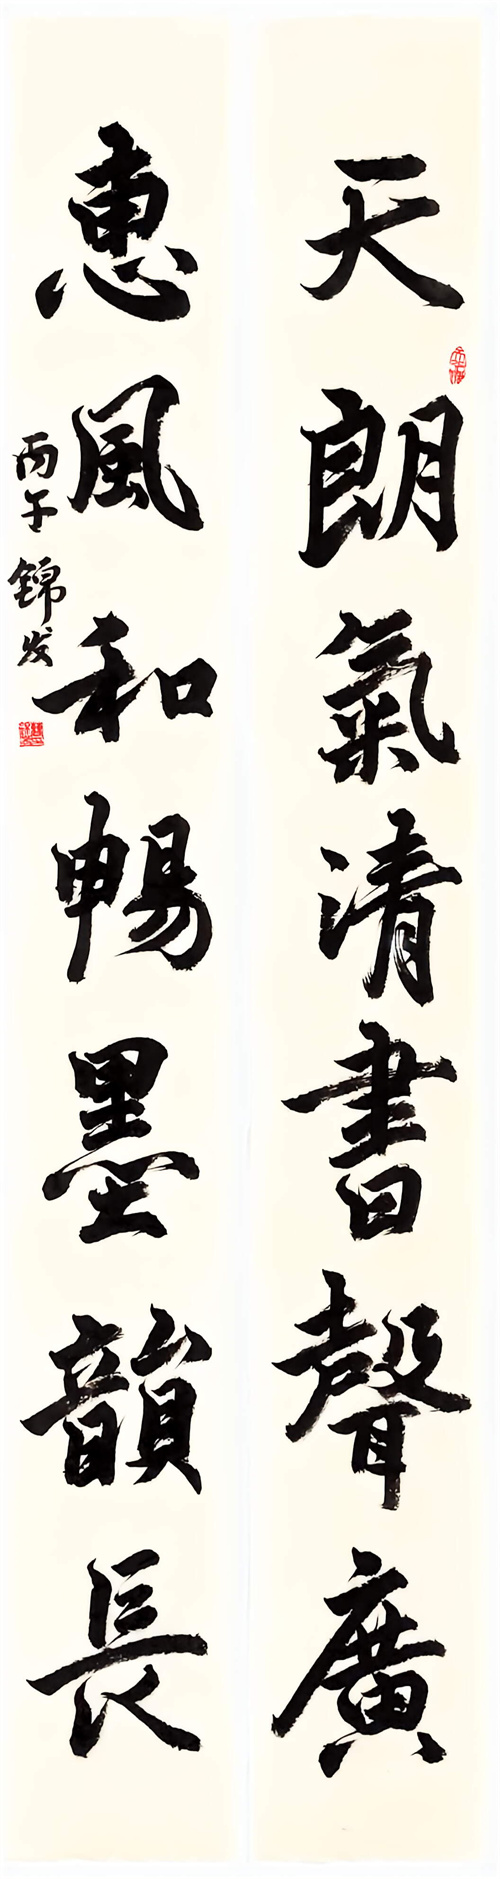 天朗氣清書聲廣
惠風和暢墨韻長
丙午 錦发